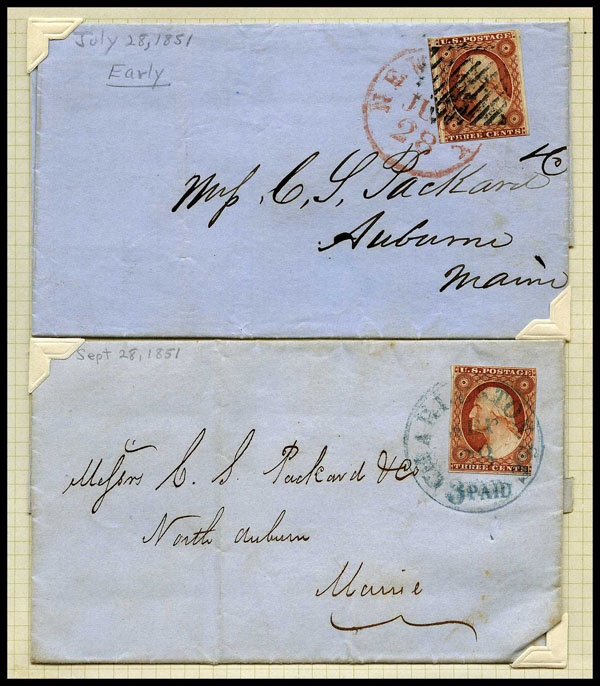 July 28, 1851
Early
U.S. POSTAGE
THREE CENTS
NEW
JUL
28
Mess C. S. Packard & Co
Auburne
Maine
Sept 28, 1851
U.S. POSTAGE
THREE CENTS
3 PAID
Messrs C. S. Packard & Co
North Auburn
Maine